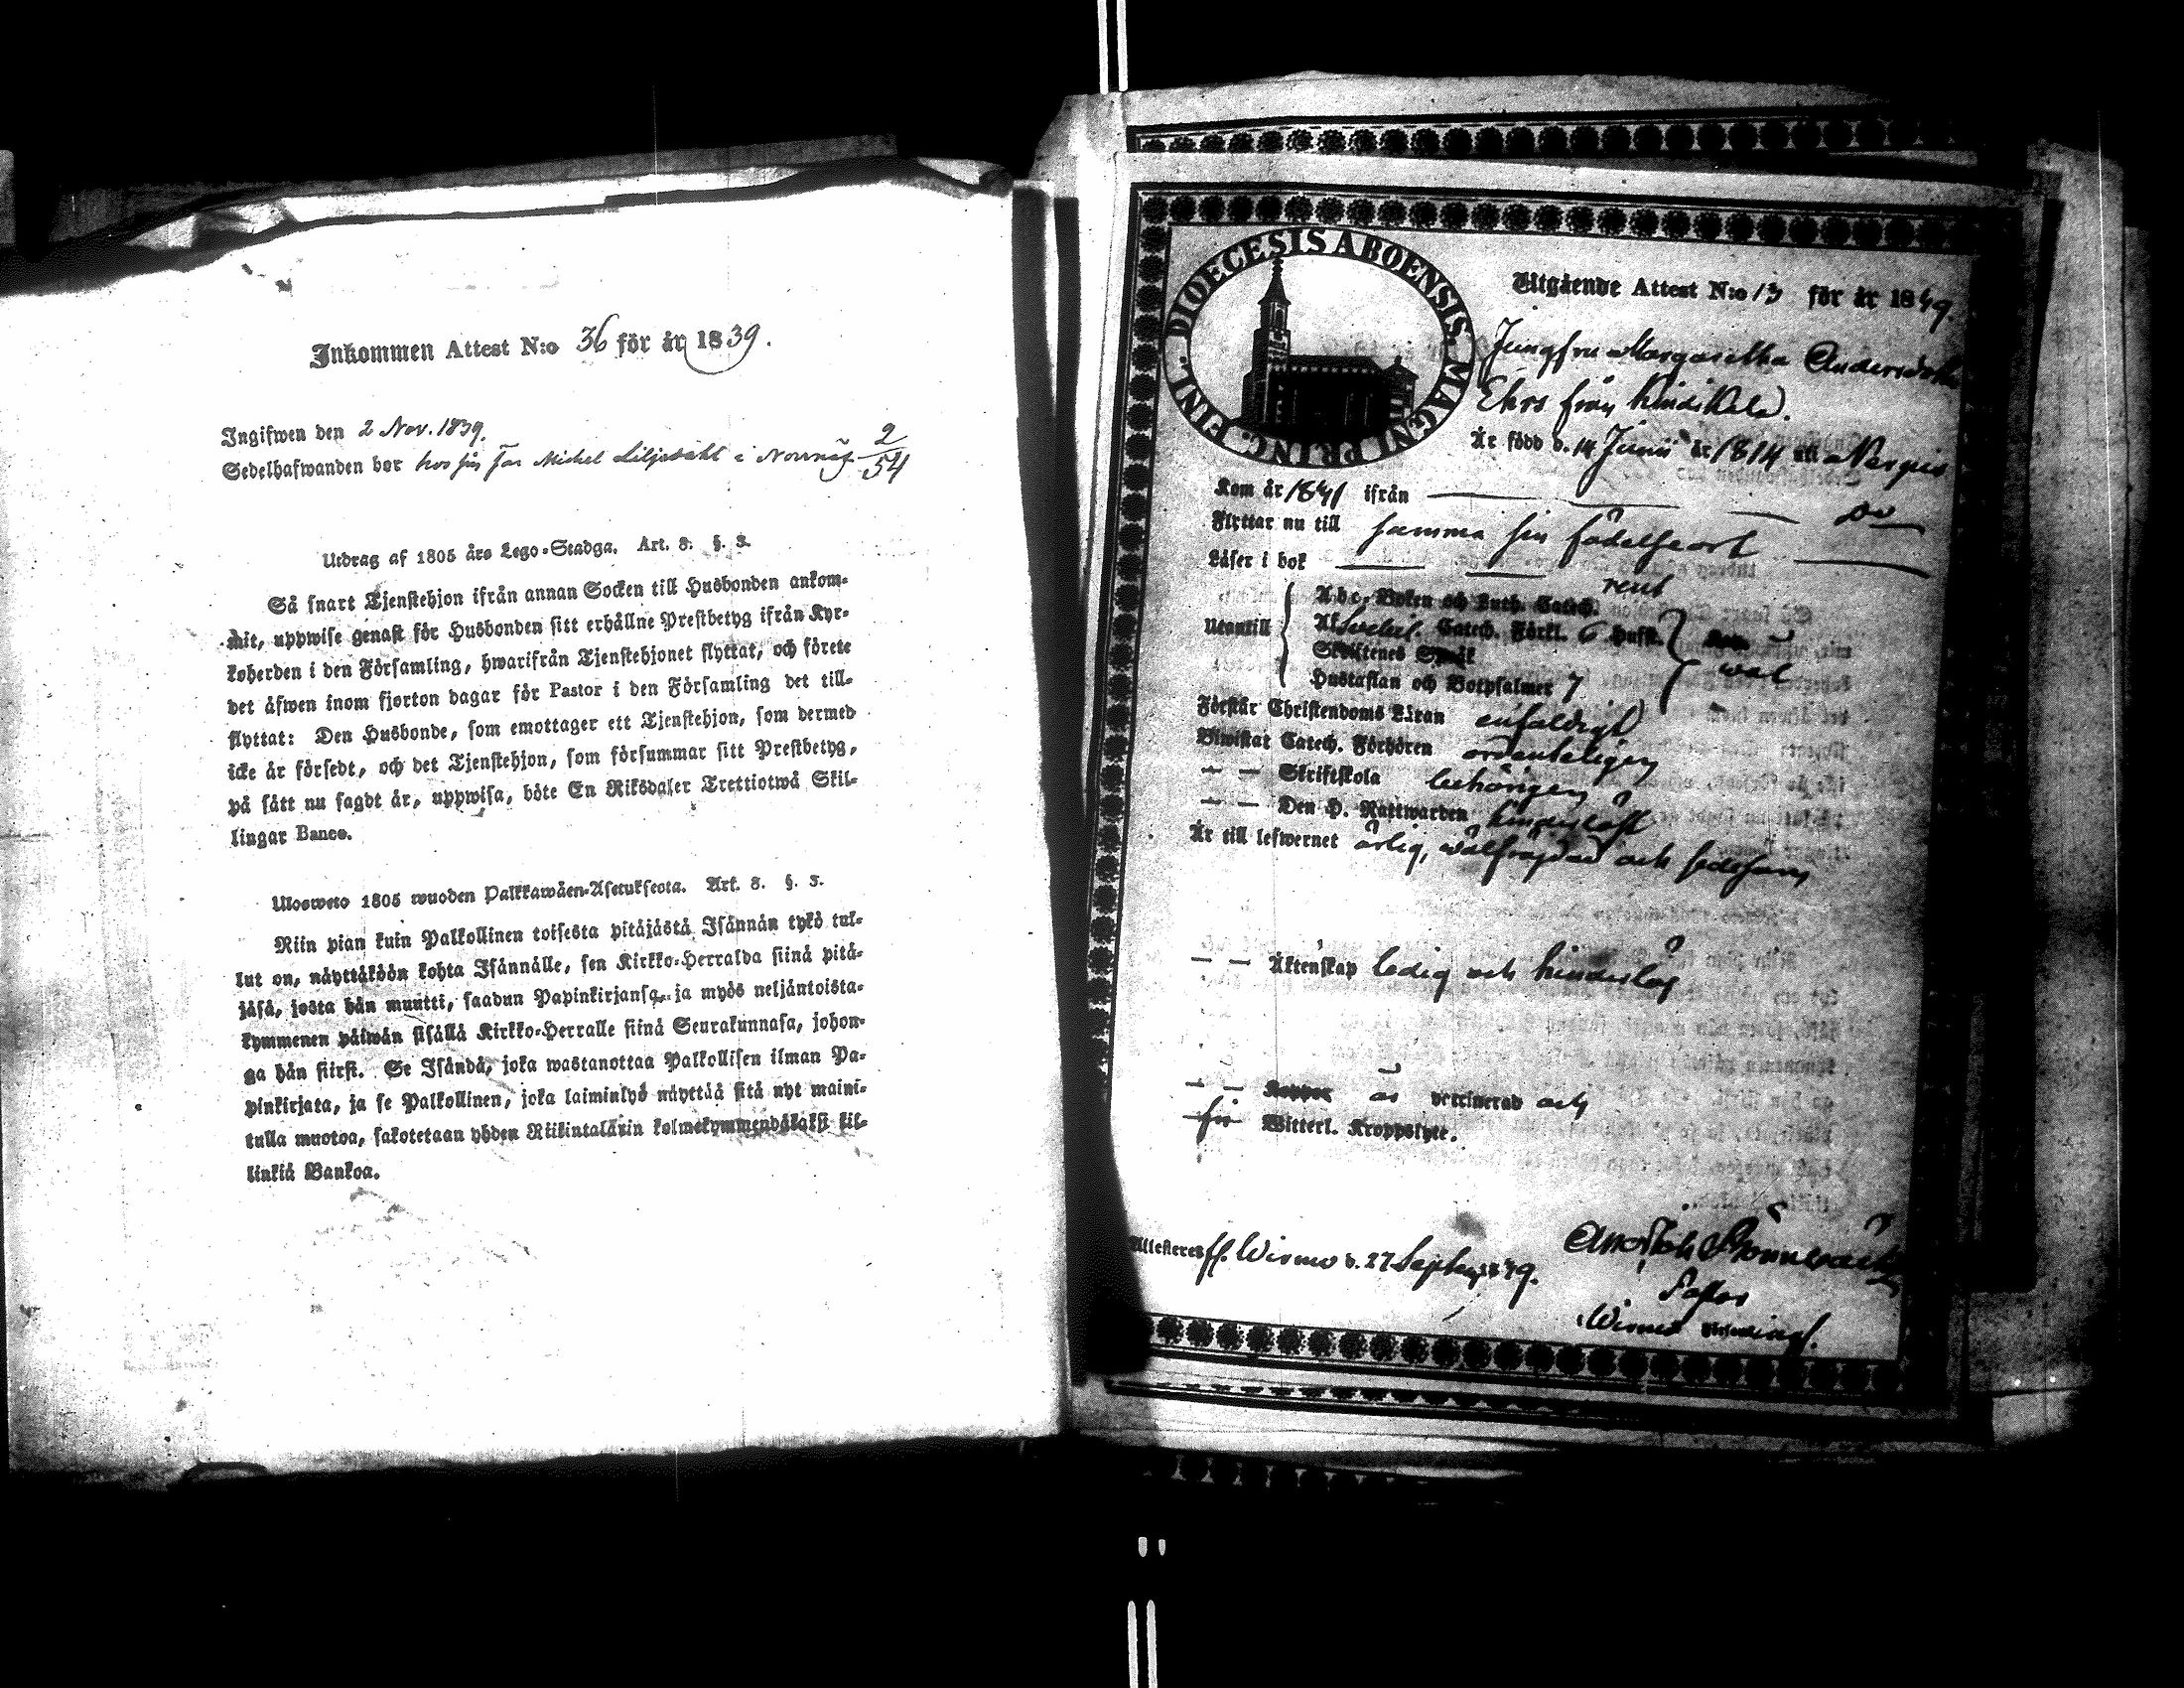 Inkommen Attest N:o 36 för år 1839.
Ingifwen den 2 Nov. 1839.
Sedelhafwanden bor hos sin Far Michel Liljedahl i 2/54
Utdrag af 1805 års Lego-Stadga. Art. 8. §. 3.
Så snart Tjenstehjon ifrån annan Socken till Husbonden ankom-
mit, uppwise genast för Husbonden sitt erhållne Prestbetyg ifrån Kyr-
koherden i den Församling, hwarifrån Tjenstehjonet flyttat, och förete
det äfwen inom fjorton dagar för Pastor i den Församling det till-
flyttat: Den Husbonde, som emottager ett Tjenstehjon, som dermed
icke är försedt, och det Tjenstehjon, som försummar sitt Prestbetyg,
på sätt nu sagdt är, uppwisa, böte En Riksdaler Trettiotwå Skil-
lingar Banco.
Ulosweto 1805 wuoden Palkkawäen-Asetuksesta. Art. 8. §. 3.
Niin pian kuin Palkollinen toisesta pitäjästä Isännän tykö tul-
lut on, näyttäköön kohta Isännälle, sen Kirkko-Herralda siinä pitä-
jäsä, josta hän muutti, saadun Papinkirjansa, ja myös neljäntoista-
kymmenen päiwän sisällä Kirkko-Herralle siinä Seurakunnasa, johon-
ga hän siirsi. Se Isändä, joka wastanottaa Palkollisen ilman Pa-
pinkirjata, ja se Palkollinen, joka laiminlyö näyttää sitä nyt maini-
tulla muotoa, sakotetaan yhden Riikintalarin kolmekymmendäkaksi kil-
linkiä Bankoa.
DIOECESIS ABOENSIS. MAGNI PRINC. FINL.
Utgående Attest N:o 13 för år 1849.
Jungfru Margaretha Andersdotter
Ehrs från
Är född d. 14 Junii år 1814 uti
Kom år 1841 ifrån Do
Flyttar nu till samma sin födelseort
Läser i bok rent
Utantill
Abc-Boken och Luth. Catech.
Catech. Förkl. 6 Hufst.
Skriftenes Språk wäl
Hustaflan och Botpsalmer 7
Förstår Christendoms Läran enfaldigt
Biwistat Catech. Förhören ordenteligen
— — Skriftskola behörigen
— — Den H. Nattwarden hinderslöst
Är till lefwernet ärlig, wälfräjdad och sedesam
— — Äktenskap ledig och hinderslös
— — Koppor är vaccinerad och
Witterl. Kroppslyte.
Attesteras ff. Wirmo d. 27 Septemb. 1849.
Pastor
Wirmo Församl.